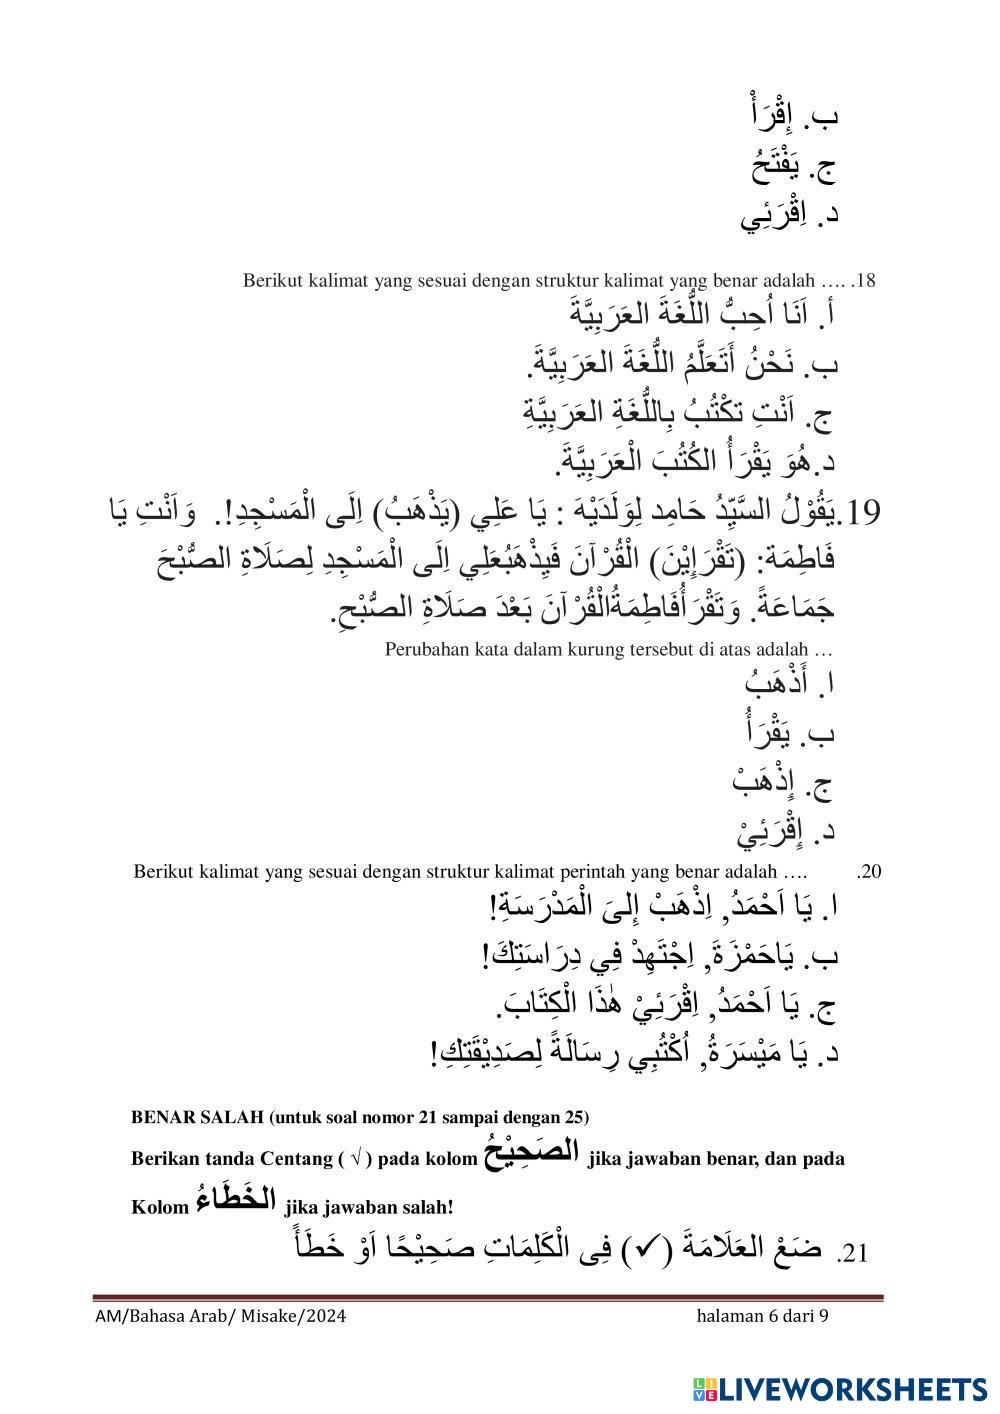 ب. إِقْرَأْ
ج. يَفْتَحُ
د. اِقْرَئِي
18. Berikut kalimat yang sesuai dengan struktur kalimat yang benar adalah ….
أ. اَنَا اُحِبُّ اللُّغَةَ العَرَبِيَّةَ
ب. نَحْنُ أَتَعَلَّمُ اللُّغَةَ العَرَبِيَّةَ.
ج. اَنْتِ تكْتُبُ بِاللُّغَةِ العَرَبِيَّةِ
د.هُوَ يَقْرَأُ الكُتُبَ الْعَرَبِيَّةَ.
19.يَقُوْلُ السَّيِّدُ حَامِد لِوَلَدَيْهَ : يَا عَلِي (يَذْهَبُ) اِلَى الْمَسْجِدِ!. وَاَنْتِ يَا
فَاطِمَة: (تَقْرَإِيْنَ) الْقُرْآنَ فَيِذْهَبُعَلِي اِلَى الْمَسْجِدِ لِصَلَاةِ الصُّبْحَ
جَمَاعَةً. وَتَقْرَأُفَاطِمَةُالْقُرْآنَ بَعْدَ صَلَاةِ الصُّبْحِ.
Perubahan kata dalam kurung tersebut di atas adalah …
ا. أَذْهَبُ
ب. يَقْرَأُ
ج. إِذْهَبْ
د. إِقْرَئِيْ
20. Berikut kalimat yang sesuai dengan struktur kalimat perintah yang benar adalah ….
ا. يَا اَحْمَدُ, اِذْهَبْ إِلىَ الْمَدْرَسَةِ!
ب. يَاحَمْزَةَ, اِجْتَهِدْ فِي دِرَاسَتِكَ!
ج. يَا اَحْمَدُ, اِقْرَئِيْ هٰذَا الْكِتَابَ.
د. يَا مَيْسَرَةُ, اُكْتُبِي رِسَالَةً لِصَدِيْقَتِكِ!
BENAR SALAH (untuk soal nomor 21 sampai dengan 25)
Berikan tanda Centang ( √ ) pada kolom الصَحِيْحُ jika jawaban benar, dan pada
Kolom الخَطَاءُ jika jawaban salah!
21. ضَعْ العَلَامَةَ (✓) فِى الْكَلِمَاتِ صَحِيْحًا اَوْ خَطَأً
AM/Bahasa Arab/ Misake/2024 halaman 6 dari 9
LIVEWORKSHEETS